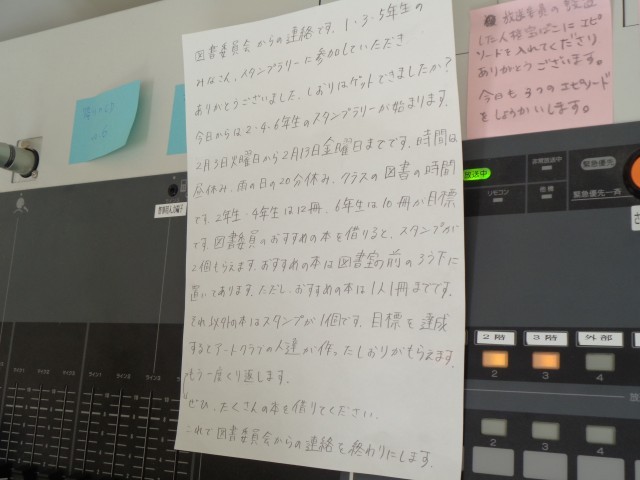 図書委員会からの連絡です。1・3・5年生の
みなさん、スタンプラリーに参加していただき
ありがとうございました。しおりはゲットできましたか？
今日からは2・4・6年生のスタンプラリーが始まります。
2月3日火曜日から2月13日金曜日までです。時間は
昼休み、雨の日の20分休み、クラスの図書の時間
です。2年生・4年生は12冊、6年生は10冊が目標
です。図書委員のおすすめの本を借りると、スタンプが
2個もらえます。おすすめの本は図書室の前のろう下に
置いてあります。ただし、おすすめの本は1人1冊までです。
それ以外の本はスタンプが1個です。目標を達成
するとアートクラブの人達が作ったしおりがもらえます。
もう一度くり返します。
ぜひ、たくさんの本を借りてください。
これで図書委員会からの連絡を終わりにします。
放送委員の
した人権宝ばこにエピ
ソードを入れてくださり
ありがとうございます。
今日も3つのエピソード
をしょうかいします。
放送中
非常放送中
緊急優先
リモコン
緊急優先一斉
2階
3階
外部
2
3
4
2
4
ライン1
ライン1
ライン2
ライン2
ライン3